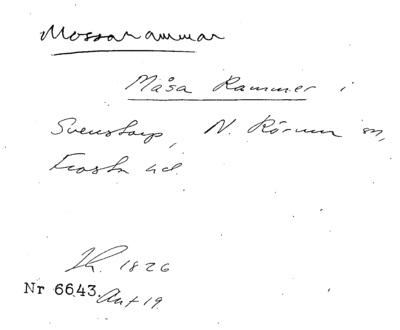 Mossarammar
Måsa Rammer i
Svenstorp, N. Rörum sn,
Frosta hd.
Lh. 1826
Nr 6643. Ant 19.